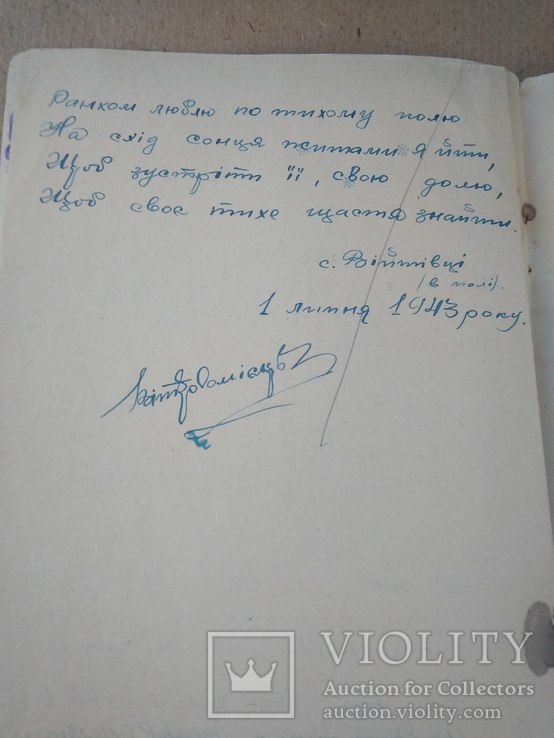 Ранком люблю по тихому полю
На схід сонця житами я йти,
Щоб зустріти її, свою долю,
Щоб своє тихе щастя знайти.
с. Війтівці
(в полі).
1 липня 1943 року.
VIOLITY
Auction for Collectors
auction.violity.com